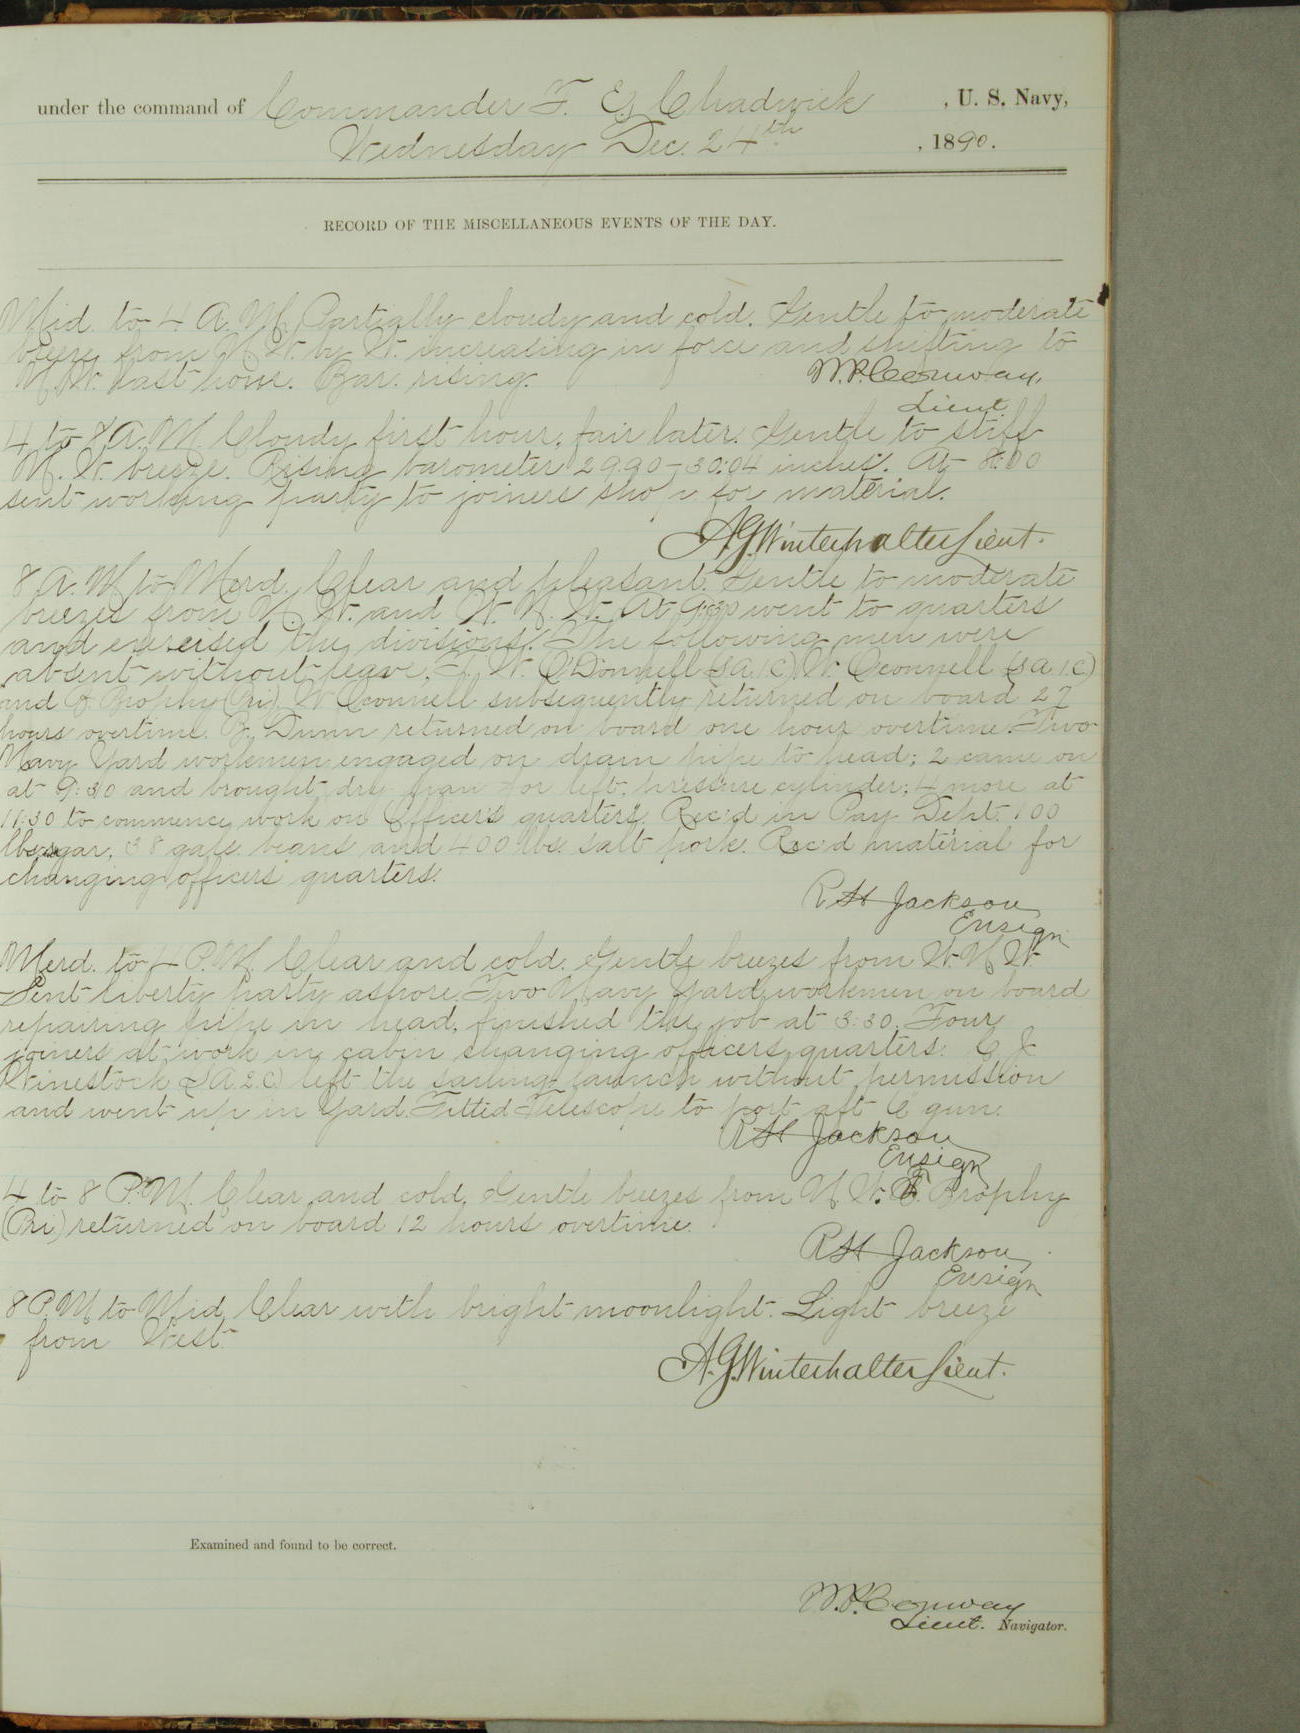 under the command of Commander F. E. Chadwick , U. S. Navy,
Wednesday Dec. 24th , 1890.
RECORD OF THE MISCELLANEOUS EVENTS OF THE DAY.
Mid. to 4 A.M. Partially cloudy and cold. Gentle to moderate
breeze from N.W. by W. increasing in force and shifting to
N.W. last hour. Bar. rising.
W.P. Conway,
Lieut
4 to 8 A.M. Cloudy first hour, fair later. Gentle to stiff
N. W. breeze. Rising barometer 29.90-30.04 inches. At 8:00
sent working party to joiners shop for material.
A.G. Winterhalter Lieut.
8 A.M to Merd. Clear and pleasant. Gentle to moderate
breezes from N. W. and W. N. W. At 9:30 went to quarters
and exercised the divisions. The following men were
absent without leave, F. W. O'Donnell (S.A.1.C) W. Oconnell (S.A.1.C)
and Brophy (Pri) W Oconnell subsequently returned on board 27
hours overtime. Dunn returned on board one hour overtime. Two
Navy Yard workmen engaged on drain pipe to head; 2 came on
at 9:30 and brought drip pan for left. pressure cylinder; 4 more at
11:30 to commence work on Officer's quarters. Rec'd in Pay Dept. 100
lbs sugar, 38 gals. beans and 400 lbs. salt pork. Rec'd material for
changing officers quarters.
R H Jackson
Ensign
Merd. to 4 P.M. Clear and cold. Gentle breezes from W.N.W.
Sent liberty party ashore. Two Navy Yard workmen on board
repairing pipe in head, finished the job at 3:30. Four
joiners at work in cabin changing officers quarters. C J
Winestock (S.A.2.C.) left the sailing launch without permission
and went up in Yard. Fitted Telescope to port aft 6" gun.
R H Jackson
Ensign
4 to 8 P.M. Clear and cold. Gentle breezes from N.W. Brophy
(Pri) returned on board 12 hours overtime.
R H Jackson
Ensign
8 P.M to Mid. Clear with bright moonlight. Light breeze
from West.
A.G. Winterhalter Lieut.
Examined and found to be correct.
W.P. Conway
Lieut. Navigator.